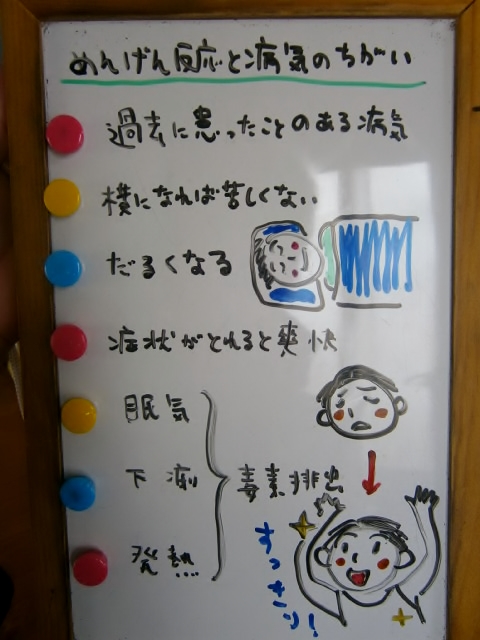 めんげん反応と病気のちがい
過去に患ったことのある病気
横になれば苦しくない
だるくなる
症状がとれると爽快
眠気
下痢
毒素排出
発熱
すっきり！